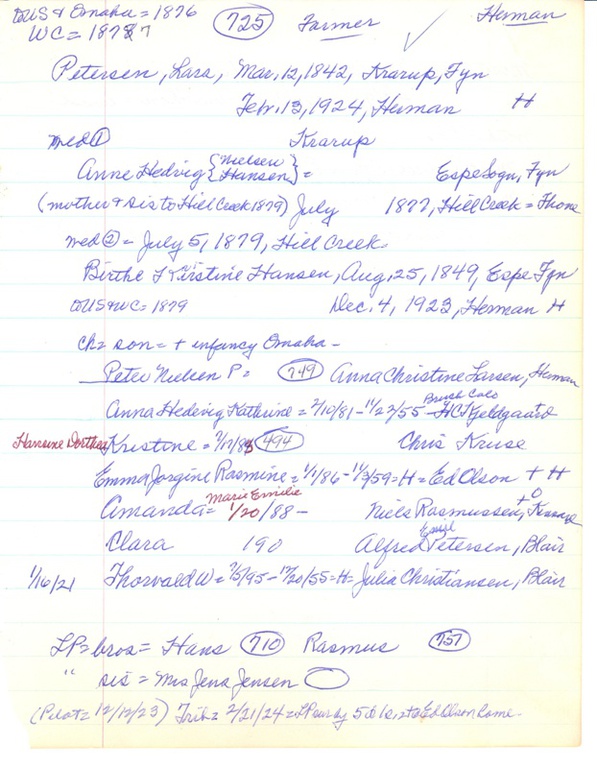 to US & Omaha = 1876 725 Farmer Herman
WC = 1877
Petersen, Lars, Mar, 12, 1842, Krarup, Fyn
Febr. 13, 1924, Herman H
med ① Krarup
Anne Hedvig {Nielsen Hansen} = Espe Sogn, Fyn
(mother & sis to Hill Creek 1879) July 1877, Hill Creek =
med ② = July 5, 1879, Hill Creek
Birthe Kirstine Hansen, Aug, 25, 1849, Espe Fyn
to US & WC = 1879 Dec. 4, 1923, Herman H
ch = son = + infancy Omaha -
Peter Nielsen P = 749 Anna Christine Larsen, Herman
Brush Colo
Anna Hedevig Kathrine = 2/10/81 - 11/23/55 - HC Kjeldgaard
Hansine Dorthea Kristine = 494 Chris Kruse
Emma Jorgine Rasmine = 1/1/86 - 11/3/59 = H = Ed Olson + H
Marie Emilie
Amanda = 1/20/88 - Niels Rasmussen,
Clara 190 Alfred Petersen, Blair
1/16/21 Thorvald W = 7/5/95 - 12/20/55 = H = Julia Christiansen, Blair
LP = bros = Hans 710 Rasmus 757
" sis = Mrs Jens Jensen
(Pilot = 12/12/23) Trib = 2/21/24 = LP Ed Olson home.